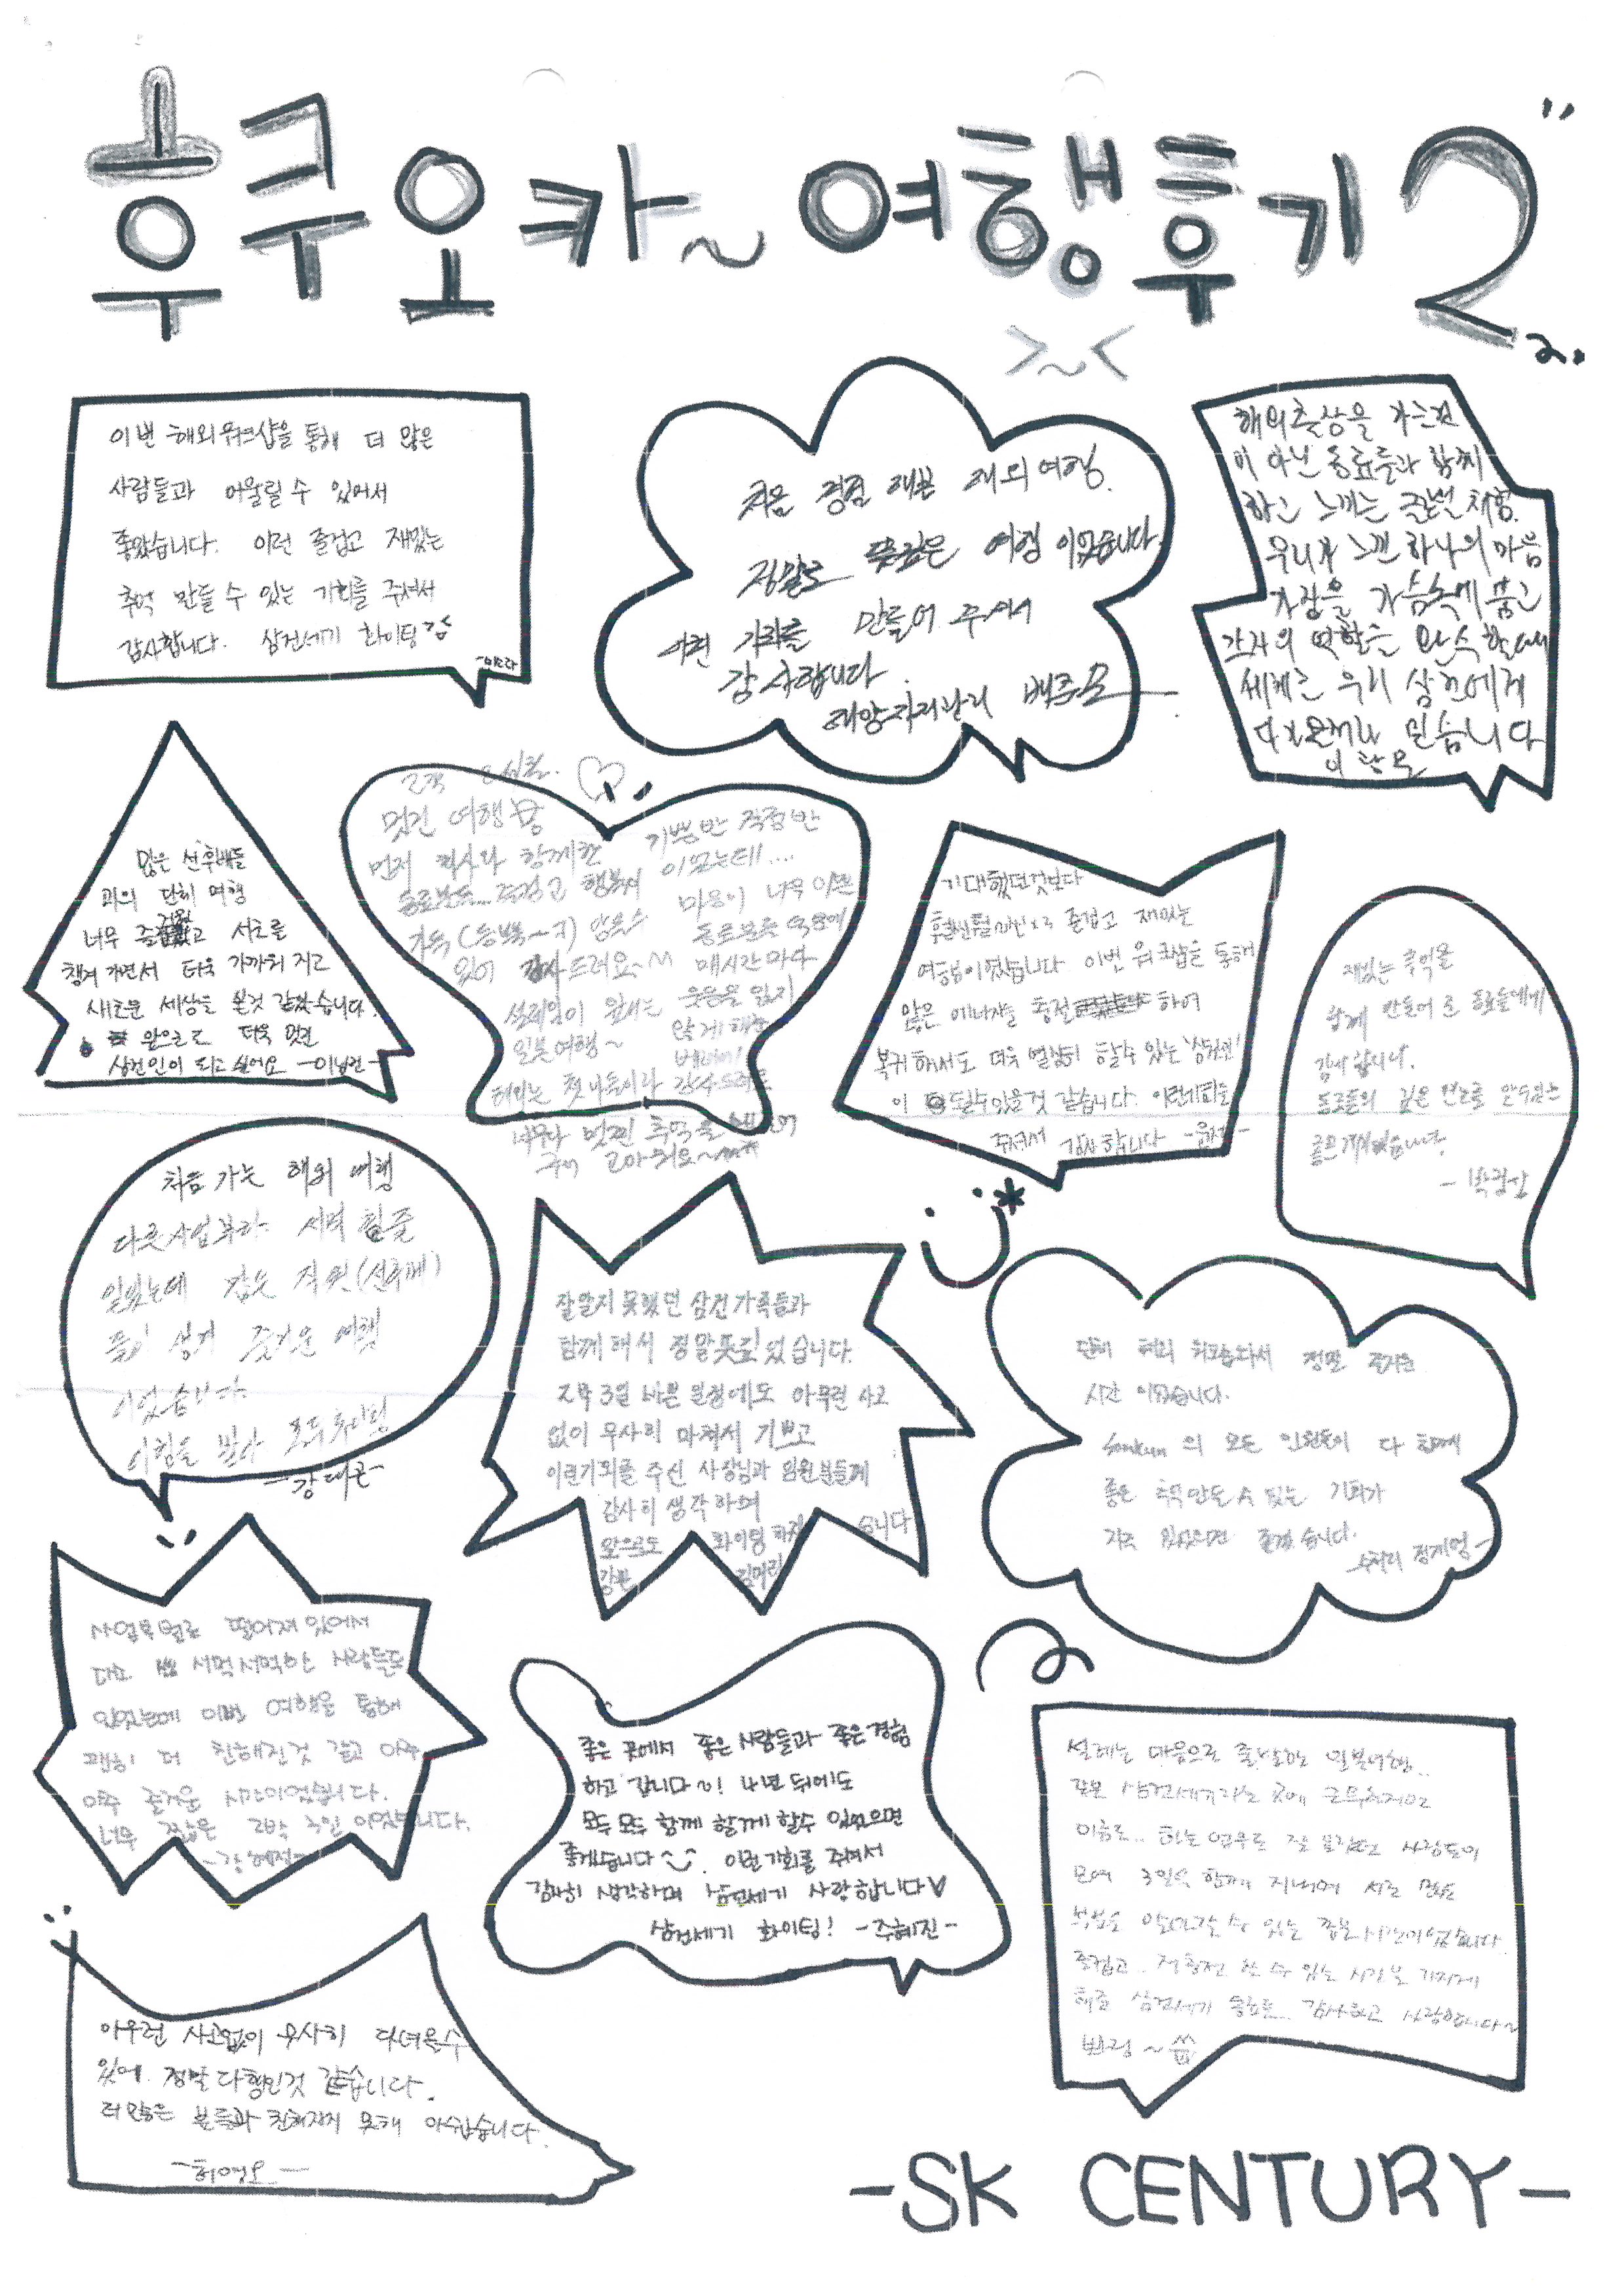 후쿠오카~ 여행후기 2"
2.
>~<
이번 해외워크샵을 통해 더 많은
사람들과 어울릴 수 있어서
좋았습니다. 이런 즐겁고 재밌는
추억 만들 수 있는 기회를 주셔서
감사합니다. 삼건세기 화이팅
-미소라
처음 경험 해본 해외여행.
정말로 뜻깊은 여행 이었습니다.
이런 기회를 만들어 주셔서
감사합니다.
해양자재관리
해외출장을 가는것
이 아닌 동료들과 함께
하고 느끼는 글로벌 체험.
우리가 느낀 하나의 마음
가짐을 가슴속에 품고
각자의 역할을 완수할때
세계는 우리 삼건에게
다가온거라 믿습니다
많은 선후배들
과의 단체 여행
너무 즐거웠고 서로를
챙겨 가면서 더욱 가까워 지고
새로운 세상을 본것 같았습니다.
앞으로도 더욱 멋진
삼건인이 되고 싶어요
멋진 여행
먼저 회사와 함께한
동료분들... 즐겁고 행복
가득
있이 감사드려요~
일본여행~
기쁨반 걱정반
이었는데....
마음이 너무 이쁜
동료분들 덕분에
매시간마다
웃음을 잃지
않게 해준
첫나들이라 감사드려요
너무나 멋진 추억을
고마워요~
기대했던것보다
훨씬 즐겁고 재밌는
여행이었습니다. 이번 워크샵을 통해
많은 에너지를 충전 하여
복귀해서도 더욱 열심히 할수 있는 '삼건인'
이 될수있을것 같습니다. 이런기회를
주셔서 감사합니다
재밌는 추억을
함께 만들어 준 동료들에게
감사합니다.
동료들의 깊은 면모를 알수있는
좋은계기였습니다.
처음 가는 해외 여행
다른사업부라 서먹 할줄
알았는데 같은 직원(선후배)
들이 생겨 즐거운 여행
이었습니다.
이힘을 받아 모두 화이팅
-강대근-
잘알지 못했던 삼건가족들과
함께해서 정말뜻깊었습니다.
2박3일 바쁜 일정에도 아무런 사고
없이 무사히 마쳐서 기쁘고
이런기회를 주신 사장님과 임원분들께
감사히 생각하며
앞으로도 화이팅 하겠습니다
단체 해외 워크샵와서 정말 즐거운
시간 이었습니다.
Samkun 의 모든 인원들이 다 함께
좋은 추억 만들 수 있는 기회가
자주 있었으면 좋겠습니다.
사업부 별로 떨어져있어서
대면 서먹서먹한 사람들도
있었는데 이번 여행을 통해
괜히 더 친해진것 같고 아주
아주 즐거운 시간이었습니다.
너무 짧은 2박 3일 이었습니다.
-강혜진-
좋은 곳에서 좋은 사람들과 좋은경험
하고 갑니다~! 4년 뒤에도
모두 모두 함께 할께 할수 있었으면
좋겠습니다 . 이런 기회를 주셔서
감사히 생각하며 삼건세기 사랑합니다♡
삼건세기 화이팅! -주혜진-
설레는 마음으로 출발한 일본여행..
같은 삼건세기라는 곳에 근무하지만
이름도.. 하는 업무도 잘 몰랐던 사람들이
모여 3일씩 함께 지내며 서로
알아갈 수 있는 좋은시간이었습니다.
즐겁고.. 재충전 할 수 있는 시간을 가지게
해준 삼건세기 감사하고 사랑합니다~
아무런 사고없이 무사히 다녀올수
있어 정말 다행인것 같습니다.
더많은 분들과 친해지지 못해 아쉽습니다.
-SK CENTURY-